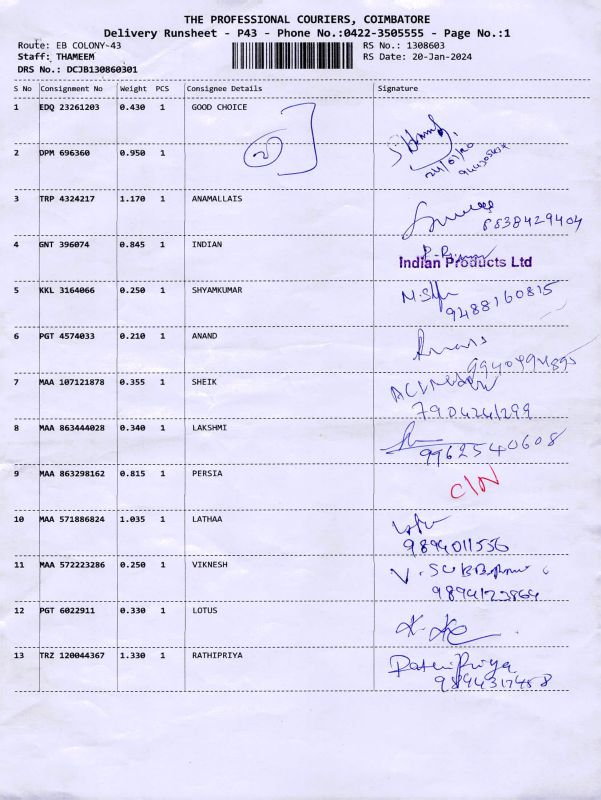 THE PROFESSIONAL COURIERS, COIMBATORE
Delivery Runsheet - P43 - Phone No.:0422-3505555 - Page No.:1
Route: EB COLONY-43 RS No.: 1308603
Staff: THAMEEM RS Date: 20-Jan-2024
DRS No.: DCJB130860301
S No Consignment No Weight PCS Consignee Details Signature
1 EDQ 23261203 0.430 1 GOOD CHOICE
2
2 DPM 696360 0.950 1
3 TRP 4324217 1.170 1 ANAMALLAIS
8838429404
4 GNT 396074 0.845 1 INDIAN
Indian Products Ltd
5 KKL 3164066 0.250 1 SHYAMKUMAR
9488160815
6 PGT 4574033 0.210 1 ANAND
7 MAA 107121878 0.355 1 SHEIK
8 MAA 863444028 0.340 1 LAKSHMI
9962540608
9 MAA 863298162 0.815 1 PERSIA C/N
10 MAA 571886824 1.035 1 LATHAA
9894011556
11 MAA 572223286 0.250 1 VIKNESH
12 PGT 6022911 0.330 1 LOTUS
13 TRZ 120044367 1.330 1 RATHIPRIYA RathiPriya